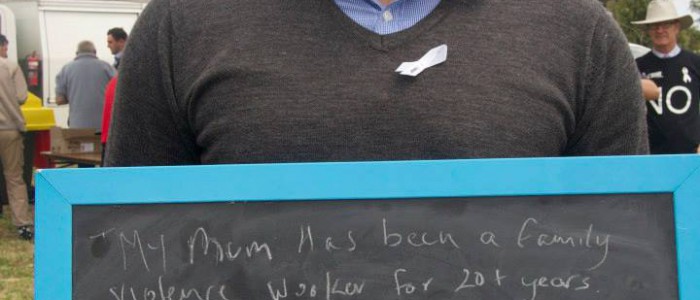 NO
My Mum Has been a Family
violence worker for 20+ years.